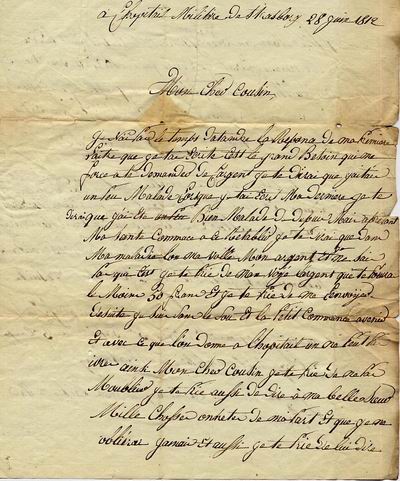 a L'hopital Militere de Strasbourg 28 juin 1812
Mon Cher Cousin,
je Nai pas le temps datandre la Repons de ma Premiere
Laitre que je tai Ecrite C'est le grand Besoin qui me
force a te demander de L'argent je te dirai que jaitai
un peu Malade Lorsque je tai Ecri Mon dernierre je te
dirai que jai Ete Bien Malade Depui Mai
Ma Sante Commance a se Rétablir je te dirai que dans
Ma maladie lon ma volle Mon argent Et je ne sai
pas qui C'est je te Prie de man voyé l'argent que tu
le Moins 50 franc Et je te Prie de me l'envoyer
de suite je sui sans le Sou Et la Petit Commance a venir
Et avec ce que lon donne a L'hopital on ne peut
vivre ainsi Mon Cher Cousin je te Prie de ne pas
M'oublier je te Prie aussi de dire à ma belle Soeur
Mille Chosse onnete de ma Part Et que je ne
l'oublirai jamai Et aussi je te Prie de lui dire